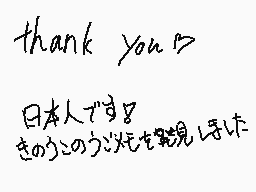 thank you♡
日本人です!
きのうこのうごメモを発見しました